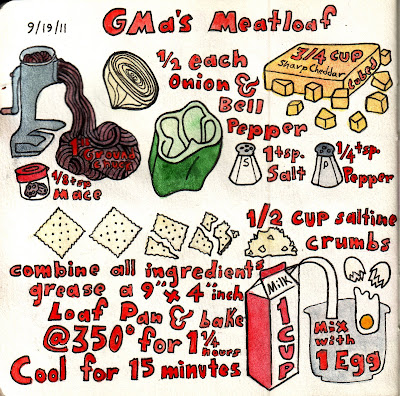 9/19/11
GMa's Meatloaf
1/2 each
Onion &
Bell
Pepper
3/4 CUP
Sharp Cheddar
cubed
1 lb
Ground
Chuck
1/8 tsp
Mace
S
1 tsp.
Salt
P
1/4 tsp.
Pepper
1/2 CUP saltine
crumbs
combine all ingredients
grease a 9"x 4"inch
Loaf Pan & bake
@350° for 1 1/4
hours
Cool for 15 minutes
Milk
1 CUP
Mix
with
1 Egg